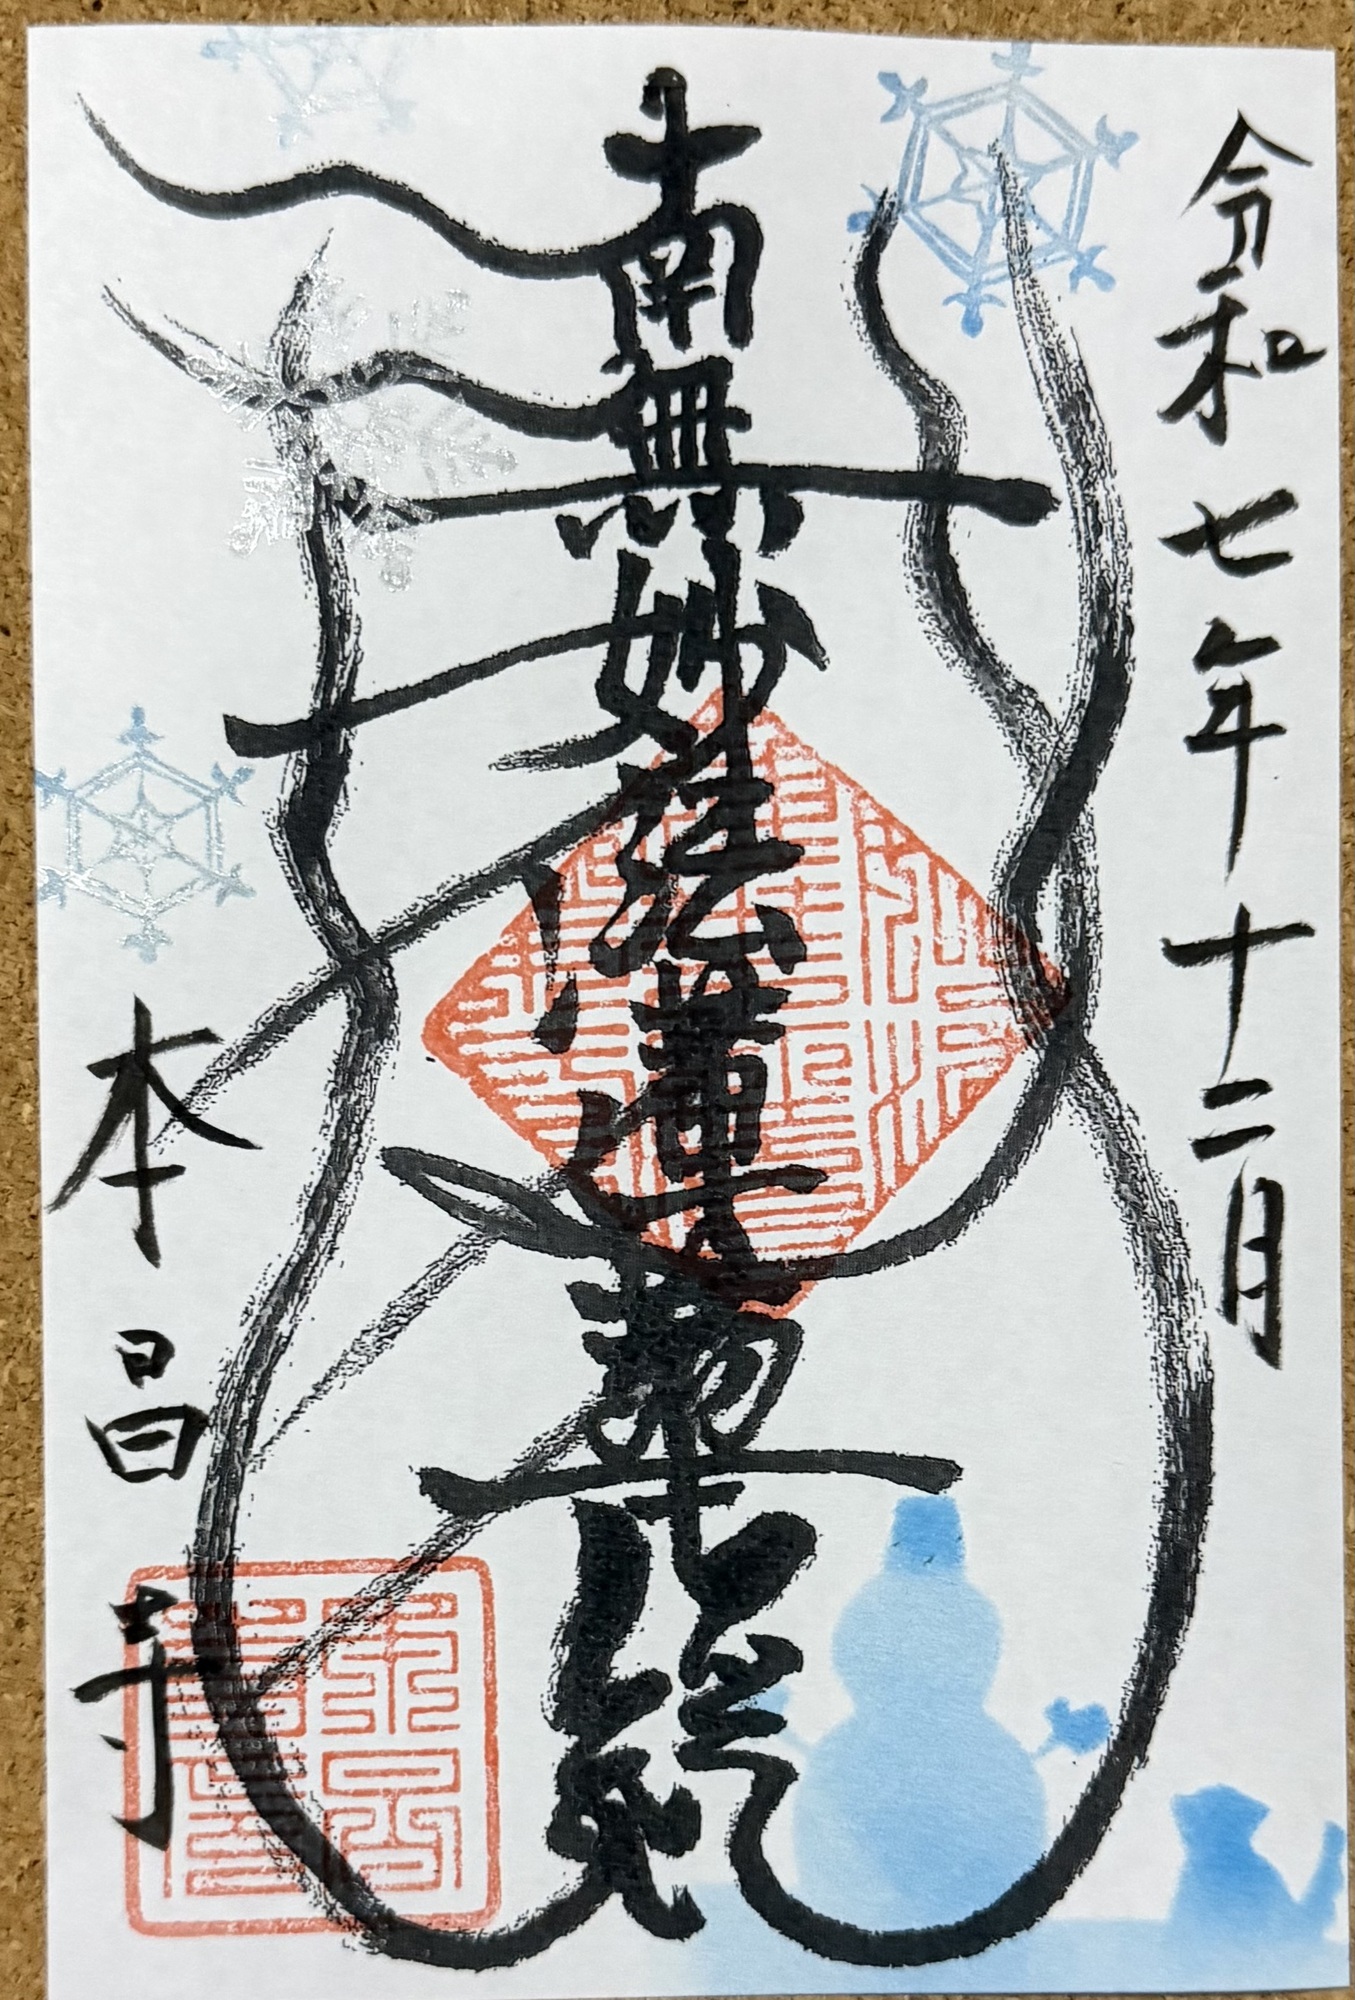 令和七年十二月
南無妙法蓮華経
本昌寺